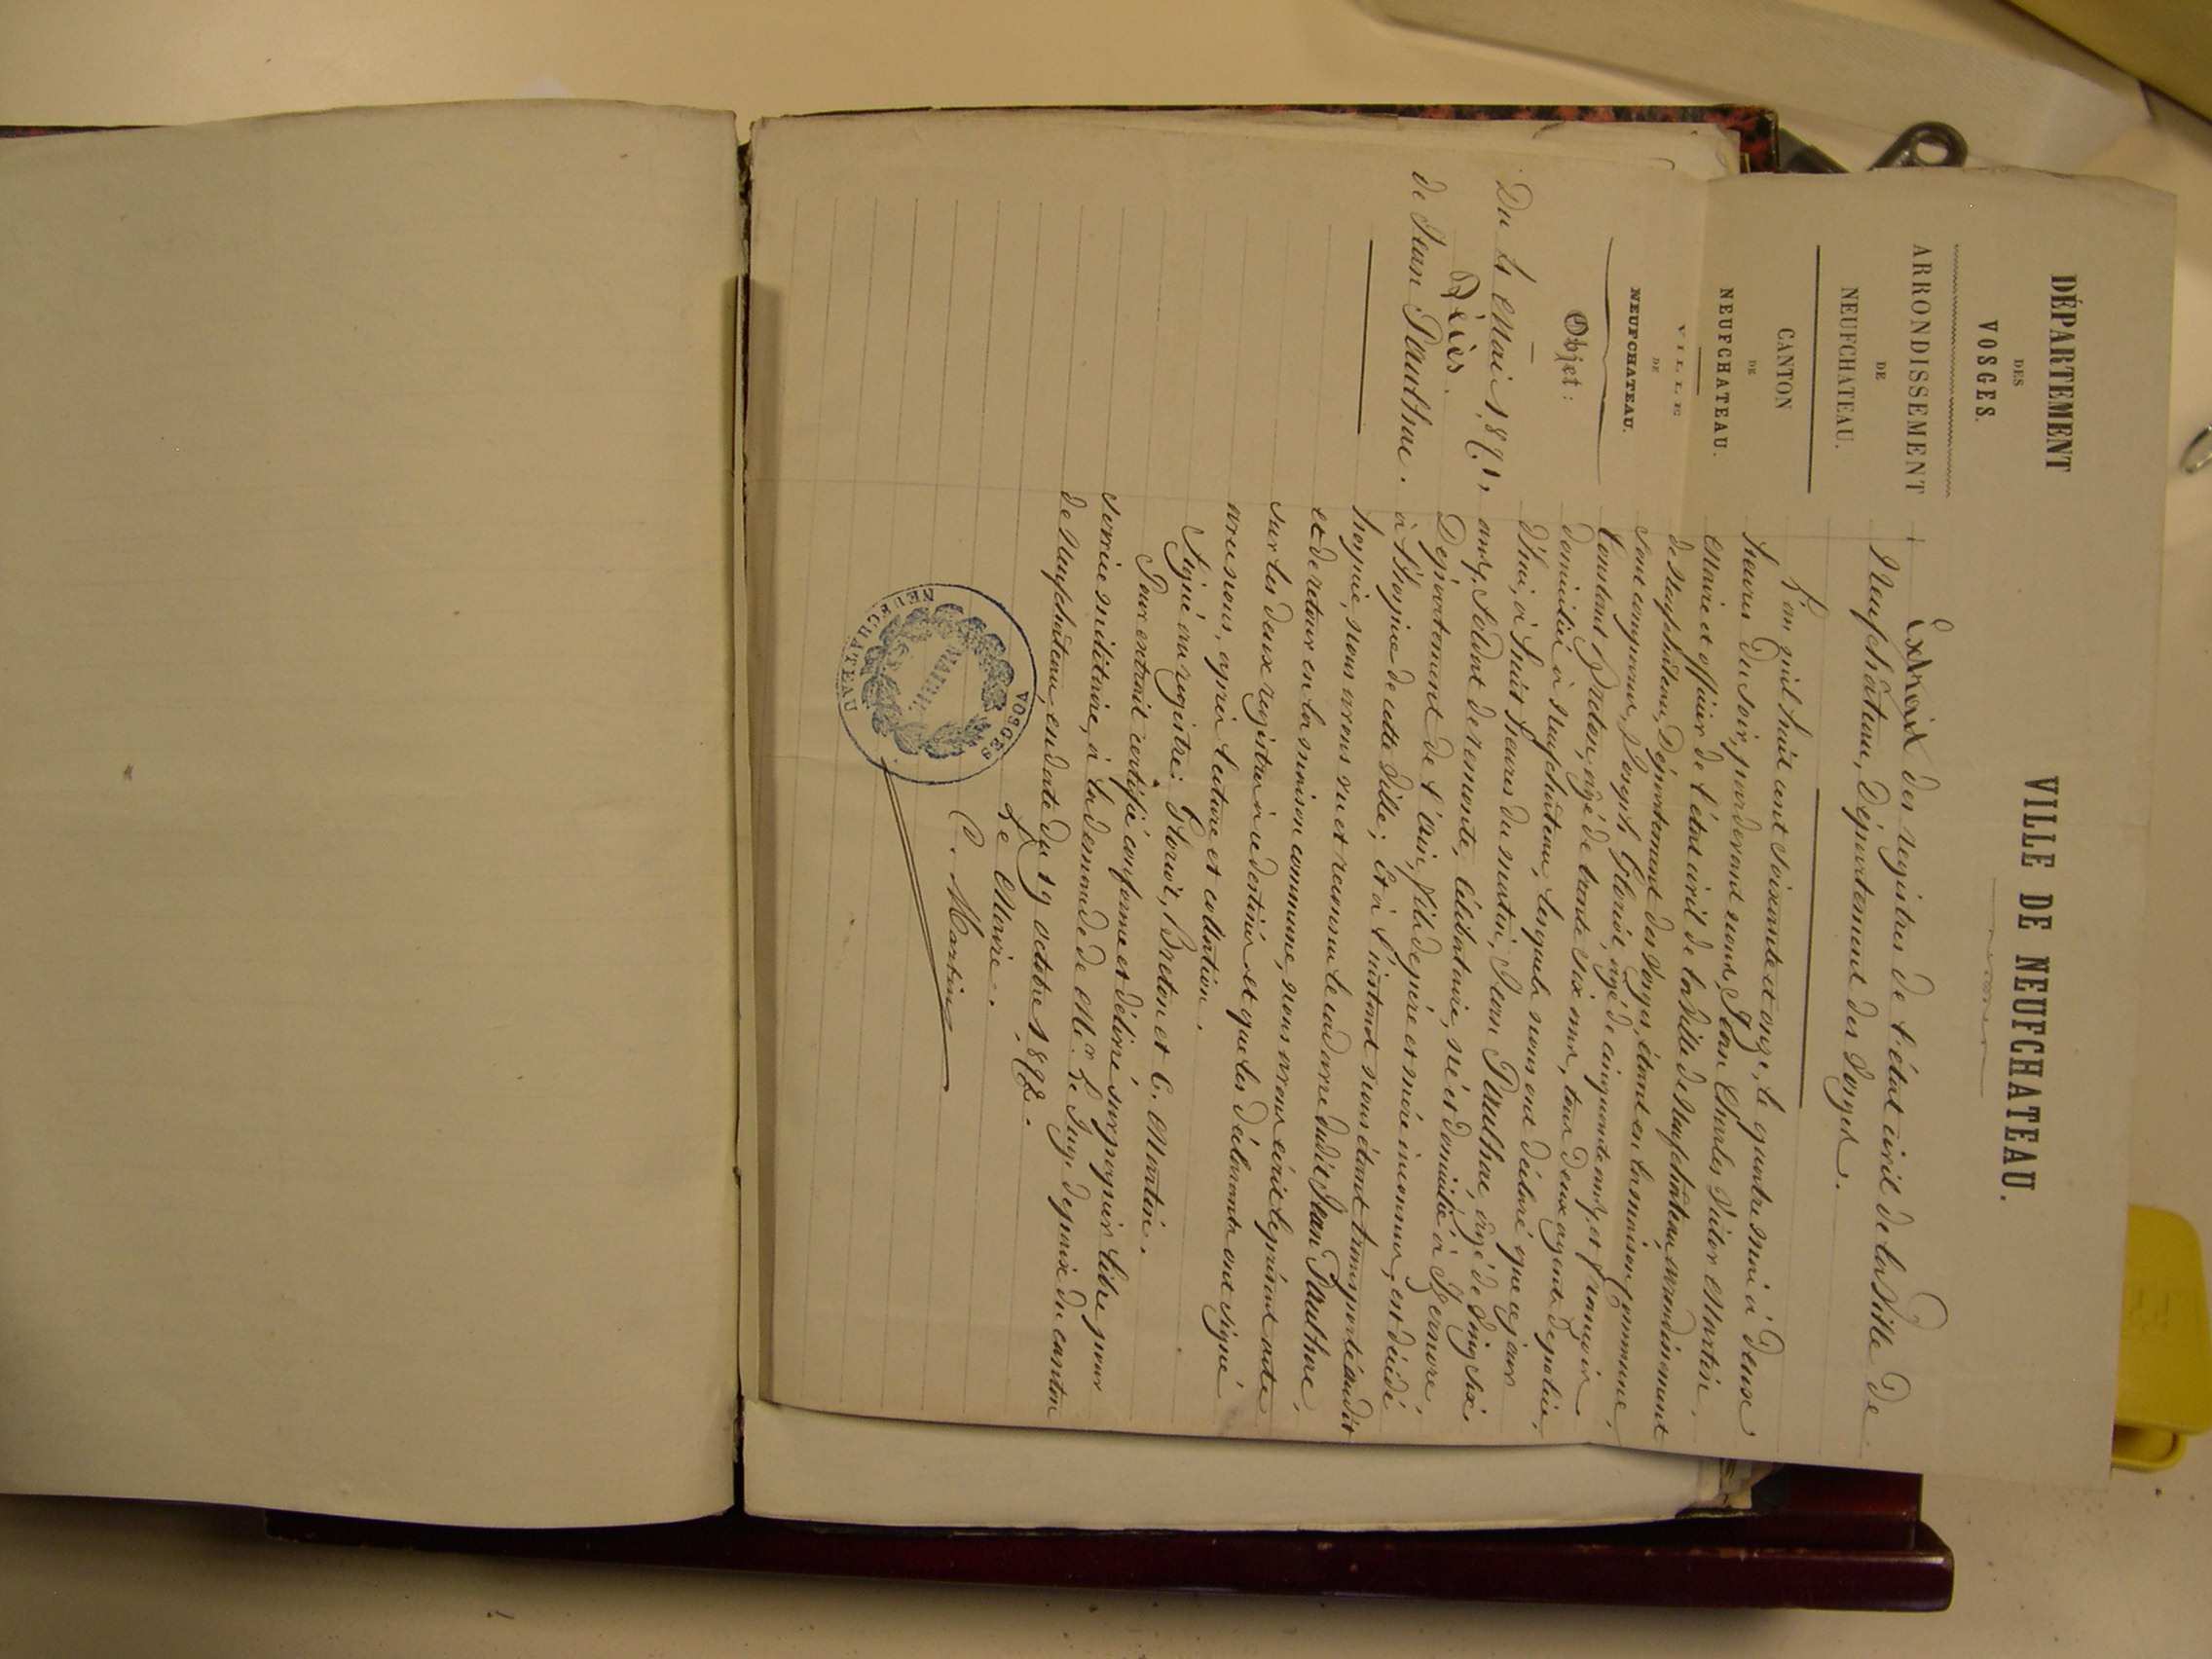 DÉPARTEMENT
DES
VOSGES.
ARRONDISSEMENT
DE
NEUFCHATEAU.
CANTON
DE
NEUFCHATEAU.
VILLE
DE
NEUFCHATEAU.
Objet :
Du 4 Mai 1871,
Décès
de Jean Pauthue.
VILLE DE NEUFCHATEAU.
Extrait des registres de l'état civil de la Ville de
Neufchâteau, Département des Vosges.
L'an mil huit cent soixante et onze, le quatre mai à deux
heures du soir, pardevant nous, Jean Charles Victor Martin,
Maire et officier de l'état civil de la Ville de Neufchâteau, arrondissement
de Neufchâteau, Département des Vosges, étant en la maison commune,
sont comparus, Joseph Floriot, âgé de cinquante ans, et François
Constant Breton, âgé de trente six ans, tous deux agents de police,
domiciliés à Neufchâteau, lesquels nous ont déclaré que ce jour
d'hui, à huit heures du matin, Jean Pauthue, âgé de vingt six
ans, Soldat de remonte, célibataire, né et domicilié à Izernore,
Département de l'Ain, fils de père et mère inconnus, est décédé
à l'hospice de cette Ville; Et à l'instant nous étant transporté audit
hospice, nous avons vu et reconnu le cadavre dudit Jean Pauthue,
et de retour en la maison commune, nous avons écrit le présent acte
sur les deux registres à ce destinés et que les déclarants ont signé
avec nous, après lecture et collation.
Signé au registre: Floriot, Breton et C. Martin.
Pour extrait certifié conforme et délivré sur papier libre pour
service militaire, à la demande de Mr. Le Juge de paix du canton
de Neufchâteau, en date du 19 octobre 1872.
Le Maire.
C. Martin
VOSGES
MAIRIE
NEUFCHATEAU